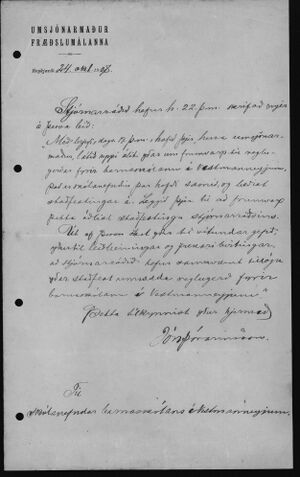 UMSJÓNARMAÐUR
FRÆÐSLUMÁLANNA
Reykjavík 24. okt. 1908.
Stjórnarráðið hefur h. 22 þ.m. skrifað mjer
á þessa leið:
Með brjefi, dags. 17. þ.m. hafið þjer, herra umsjónar-
maður, látið uppi álit yðar um frumvarp til reglu-
gerðar fyrir barnaskólann í Vestmannaeyjum,
þar er skólanefndin þar hefði samið, og beðist
staðfestingar á. Leggið þjer til að frumvarp
þetta öðlist staðfestingu stjórnarráðsins.
Út af þessu skal yður til vitundar gefið,
yður til leiðbeiningar og frekari birtingar,
að stjórnarráðið hefur samkvæmt tillögu
yðar staðfest umrædda reglugerð fyrir
barnaskólann í Vestmannaeyjum"
Þetta tilkynnist yður hjermeð
Jón Þórarinsson.
Til
skólanefndar barnaskólans í Vestmannaeyjum.